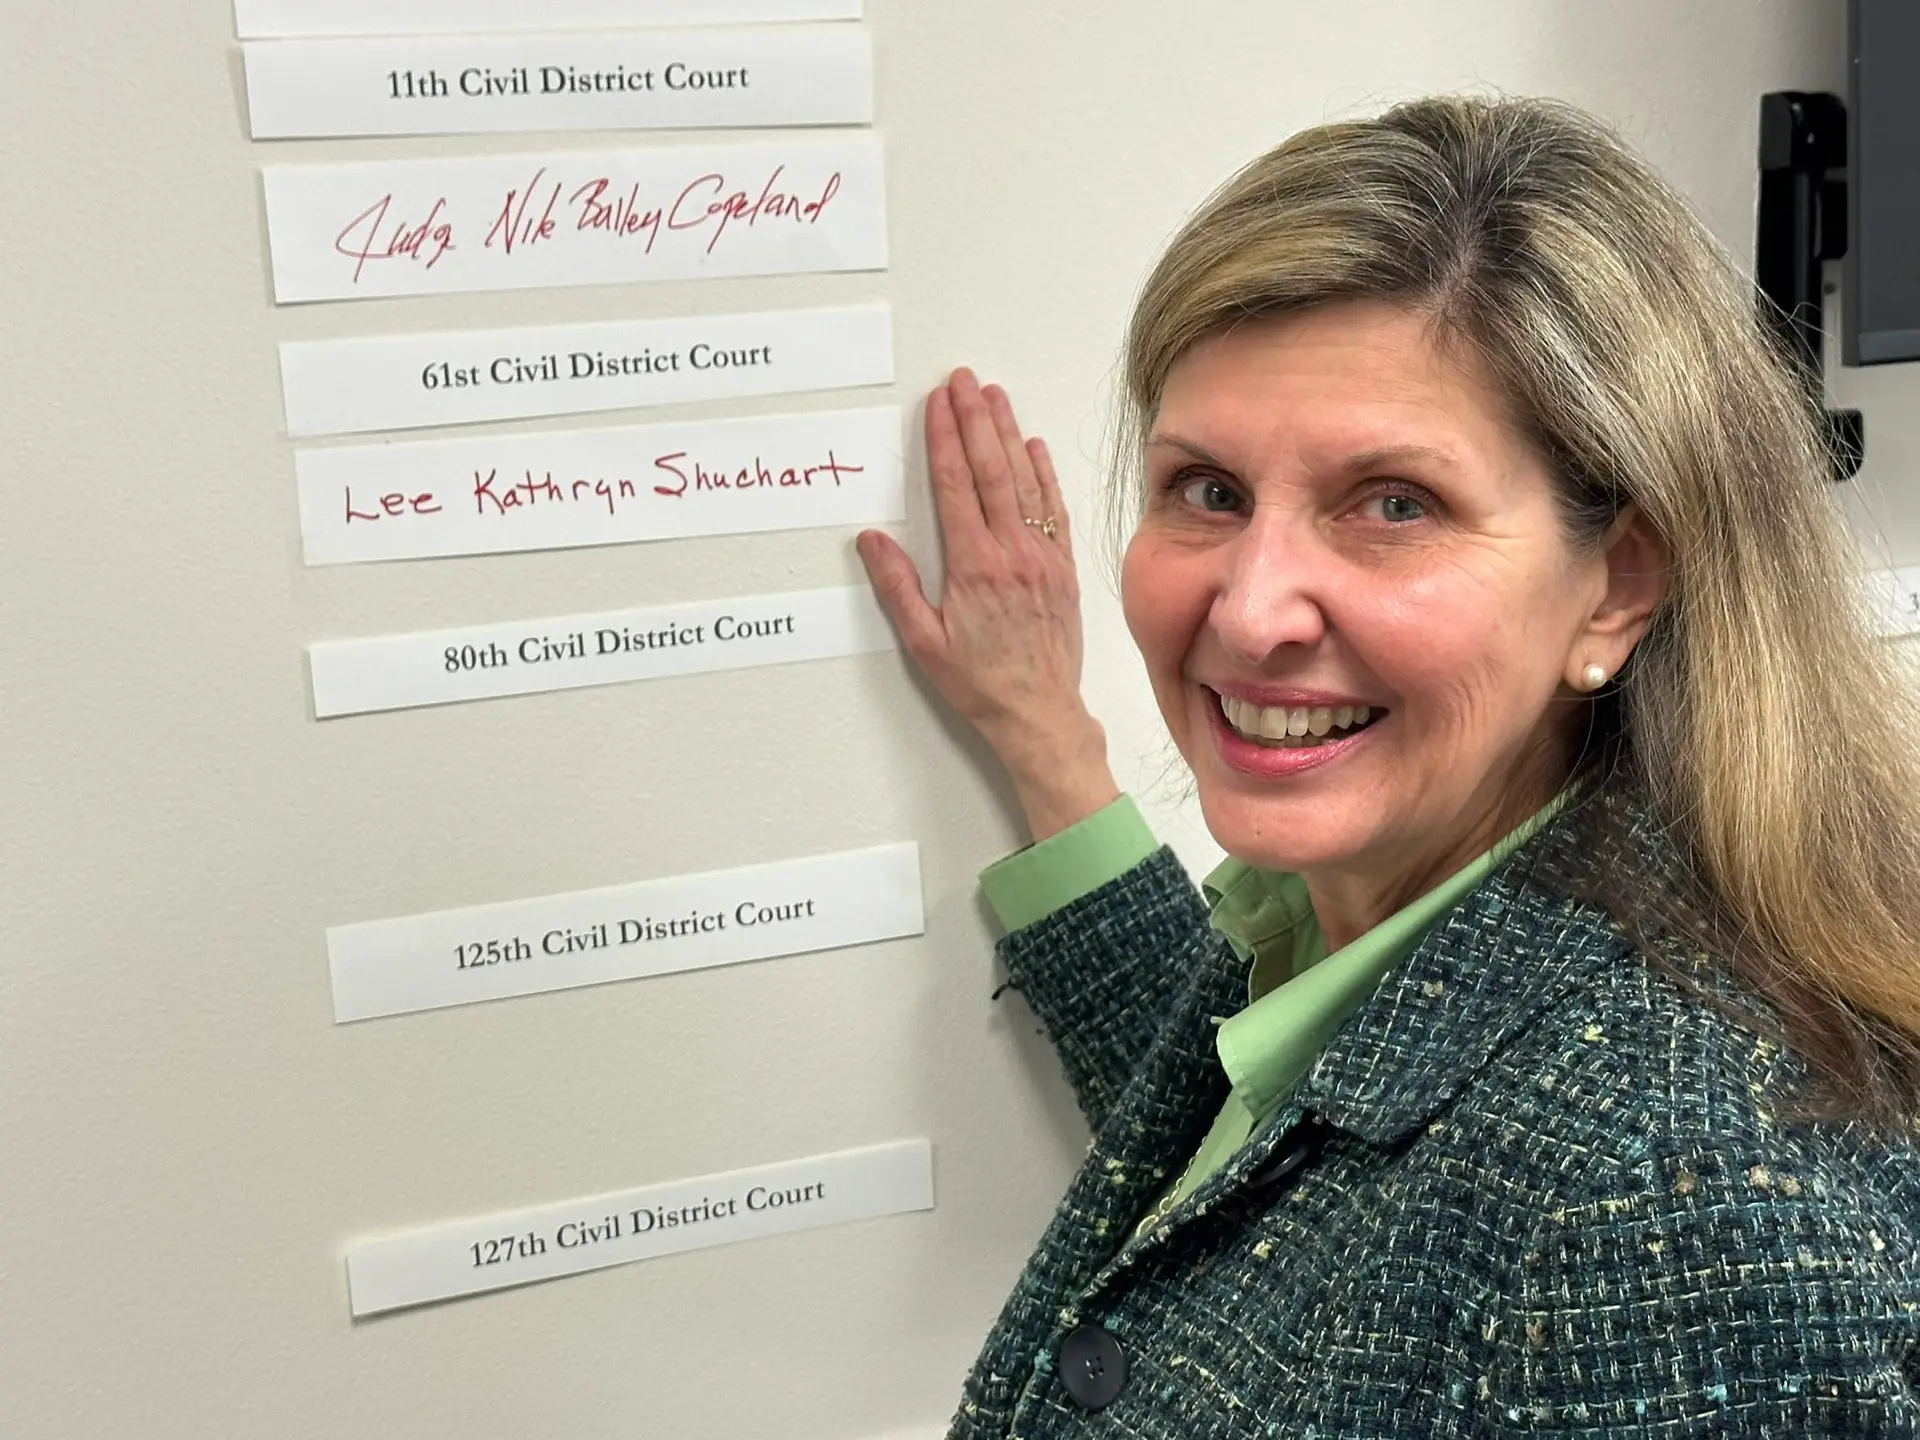 11th Civil District Court
Judge Nik Bailey Copeland
61st Civil District Court
Lee Kathryn Shuchart
80th Civil District Court
125th Civil District Court
127th Civil District Court